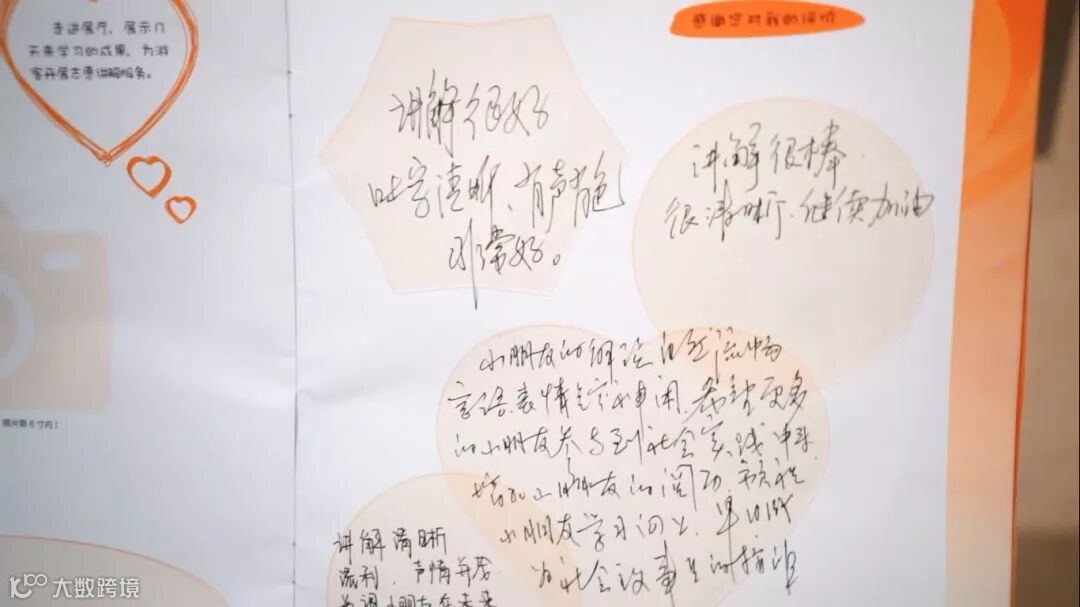 走进展厅，展示几
天来学习的成果，为游
客开展志愿讲解服务。
照片第6寸内）
感谢您对我的评价
讲解很好
吐字清晰、有声有色
非常好。
讲解很棒
很清晰，继续加油
小朋友的解说自然流畅
言语表情气定神闲，希望更多
的小朋友参与到社会实践中来
增加小朋友的阅历，预祝
小朋友学习向上，早日成
为社会
讲解清晰
流利，声情并茂
大数跨境